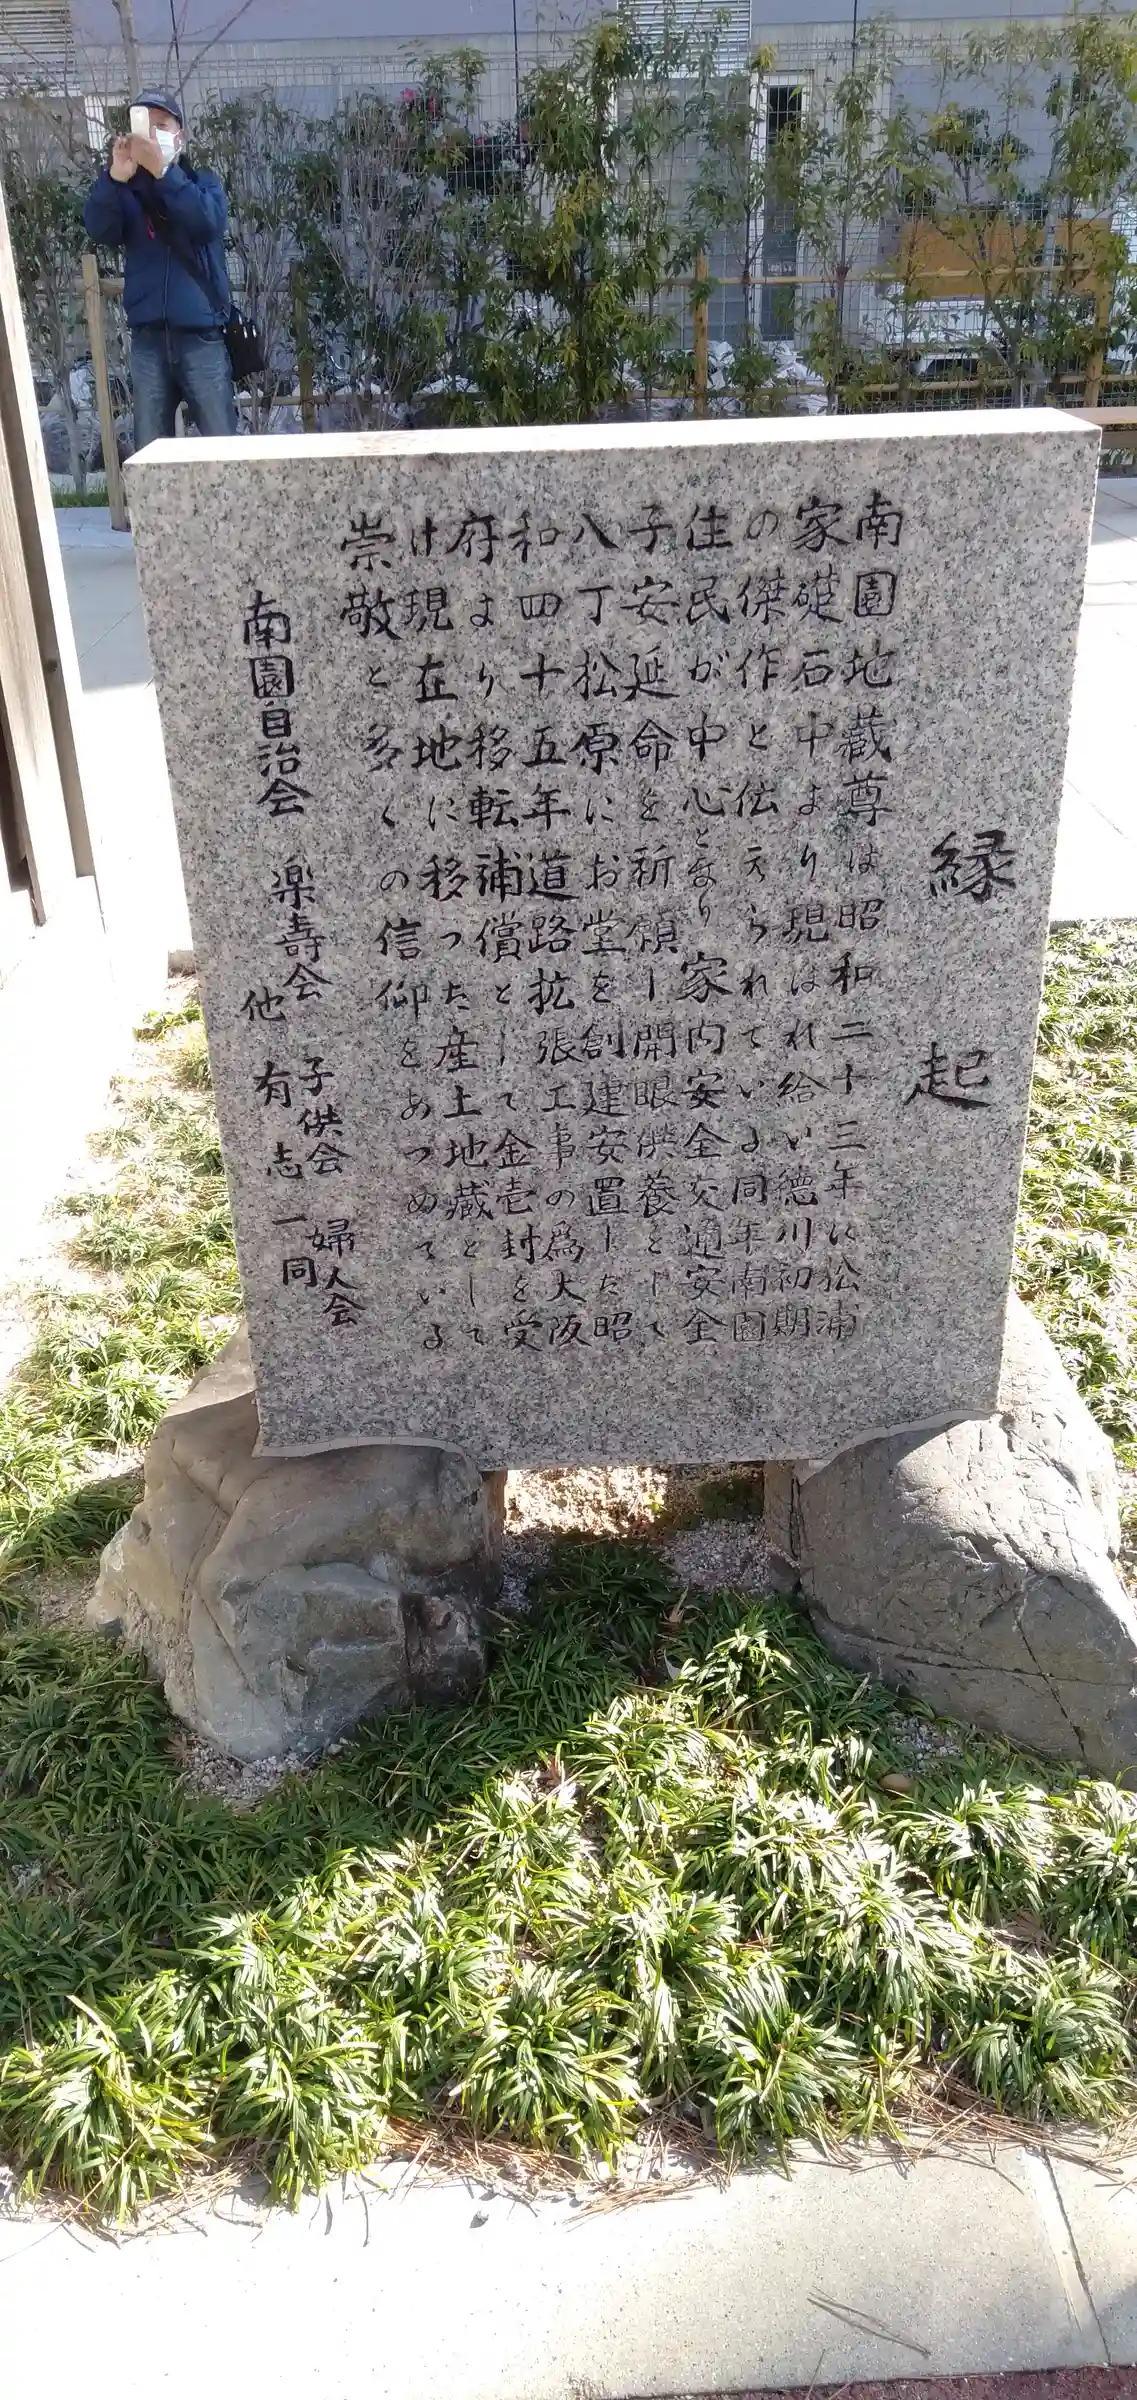 縁起
南園地蔵尊は昭和二十三年に松浦
家礎石中より現はれ給い徳川初期
の傑作と伝えられている同年南園
住民が中心となり家内安全交通安全
子安延命を祈願し開眼供養として
八丁松原にお堂を創建安置した昭
和四十五年道路拡張工事の為大阪
府より移転補償として金壱封を受
け現在地に移った産土地蔵として
崇敬と多くの信仰をあつめている
南園自治会 楽寿会 子供会 婦人会
他 有志一同